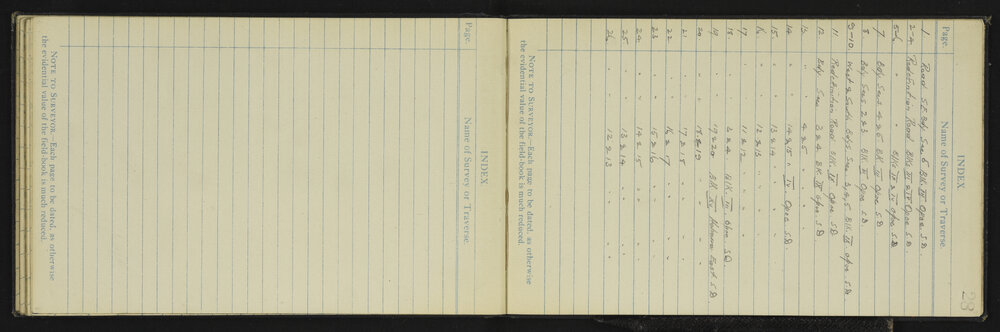 28
INDEX
Page. Name of Survey or Traverse.
1 Road S.E. Bdy Sec 6 Blk. IV Opoe S.D.
2-4 Redefinition Road Blks III & IV Opoe S.D.
5-6 " " Blks III & IV Opoe S.D
7 Bdy Secs 4 & 5 Blk IV Opoe S.D
8 Bdy Secs 2 & 3 Blk IV Opoe S.D.
9-10 West & South Bdys Sec 3, 4, 5 Blk IV Opoe S.D
11 Redefinition Road Blk IV Opoe S.D
12 Bdy Secs 3 & 4 Blk IV Opoe S.D.
13 " " 4 & 5 " " "
14 " " 14 & 15 " IV Opoe S.D.
15 " " 13 & 14 " " "
16 " " 12 & 13 " " "
17 " " 11 & 12 " " "
18 " " 2 & 4 Blk. IV Opoe S.D.
19 " " 19 & 20 Blk XV East S.D.
20 " " 18 & 19 " "
21 " " 17 & 18 " "
22 " " 16 & 17 " "
23 " " 15 & 16 " "
24 " " 14 & 15 " "
25 " " 13 & 14 " "
26 " " 12 & 13 " "
NOTE TO SURVEYOR.—Each page to be dated, as otherwise
the evidential value of the field-book is much reduced.
INDEX
Page. Name of Survey or Traverse.
NOTE TO SURVEYOR.—Each page to be dated, as otherwise
the evidential value of the field-book is much reduced.